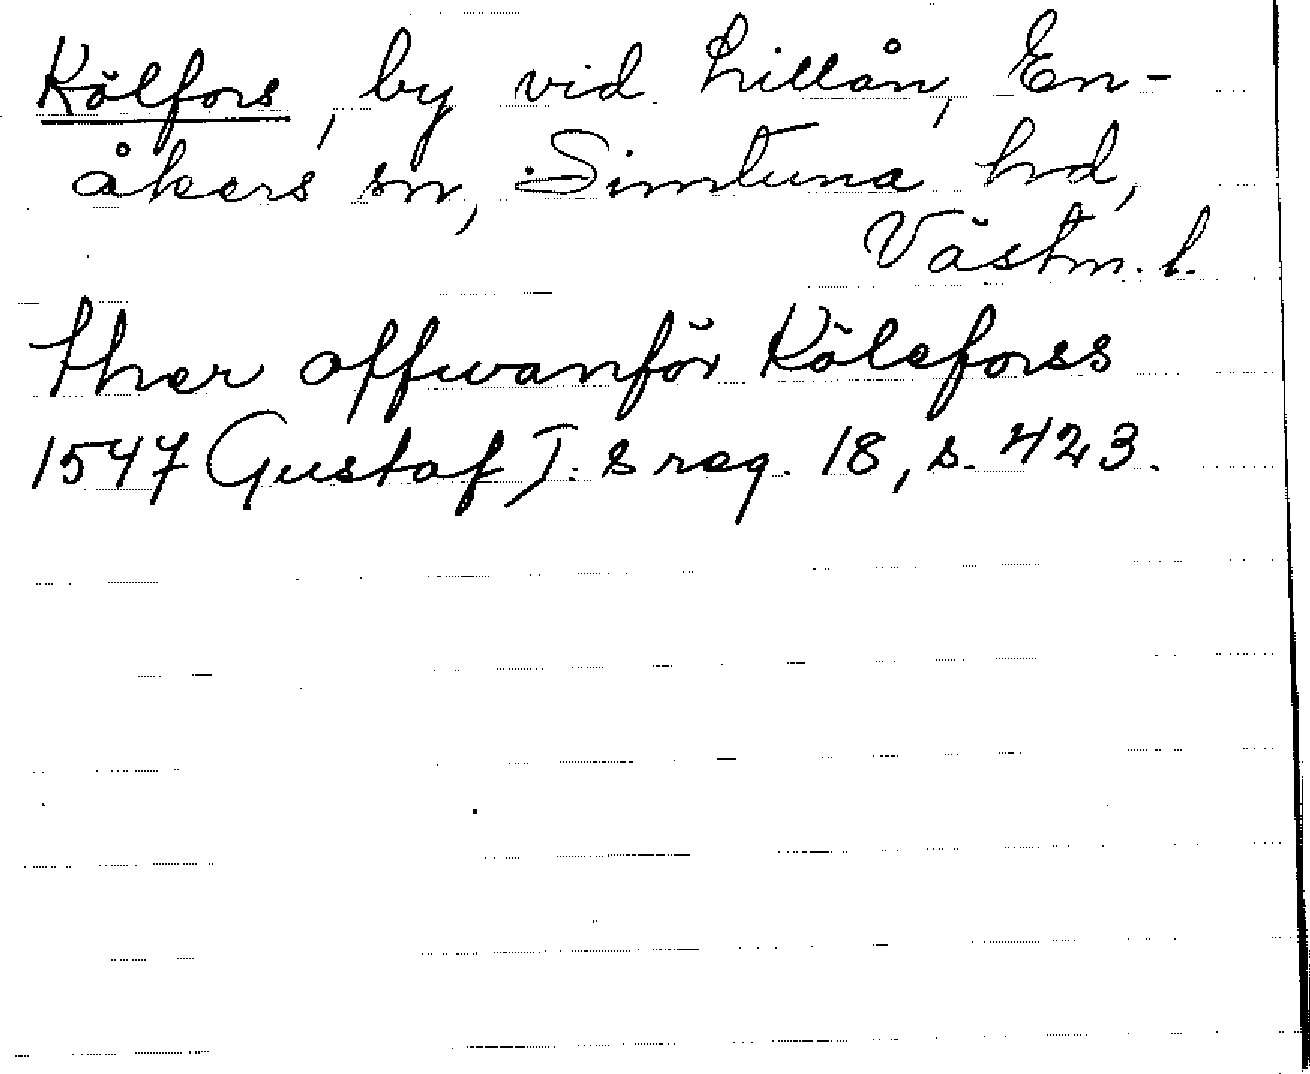 Kölfors, by vid Lillån, En-
åkers sn, Simtuna hd,
Västm. l.
ther offwanför Köleforss
1547 Gustaf I:s reg. 18, s. 423.